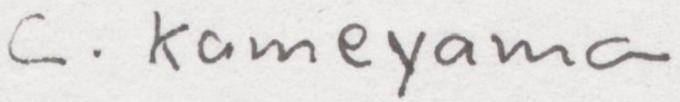 C. Kameyama